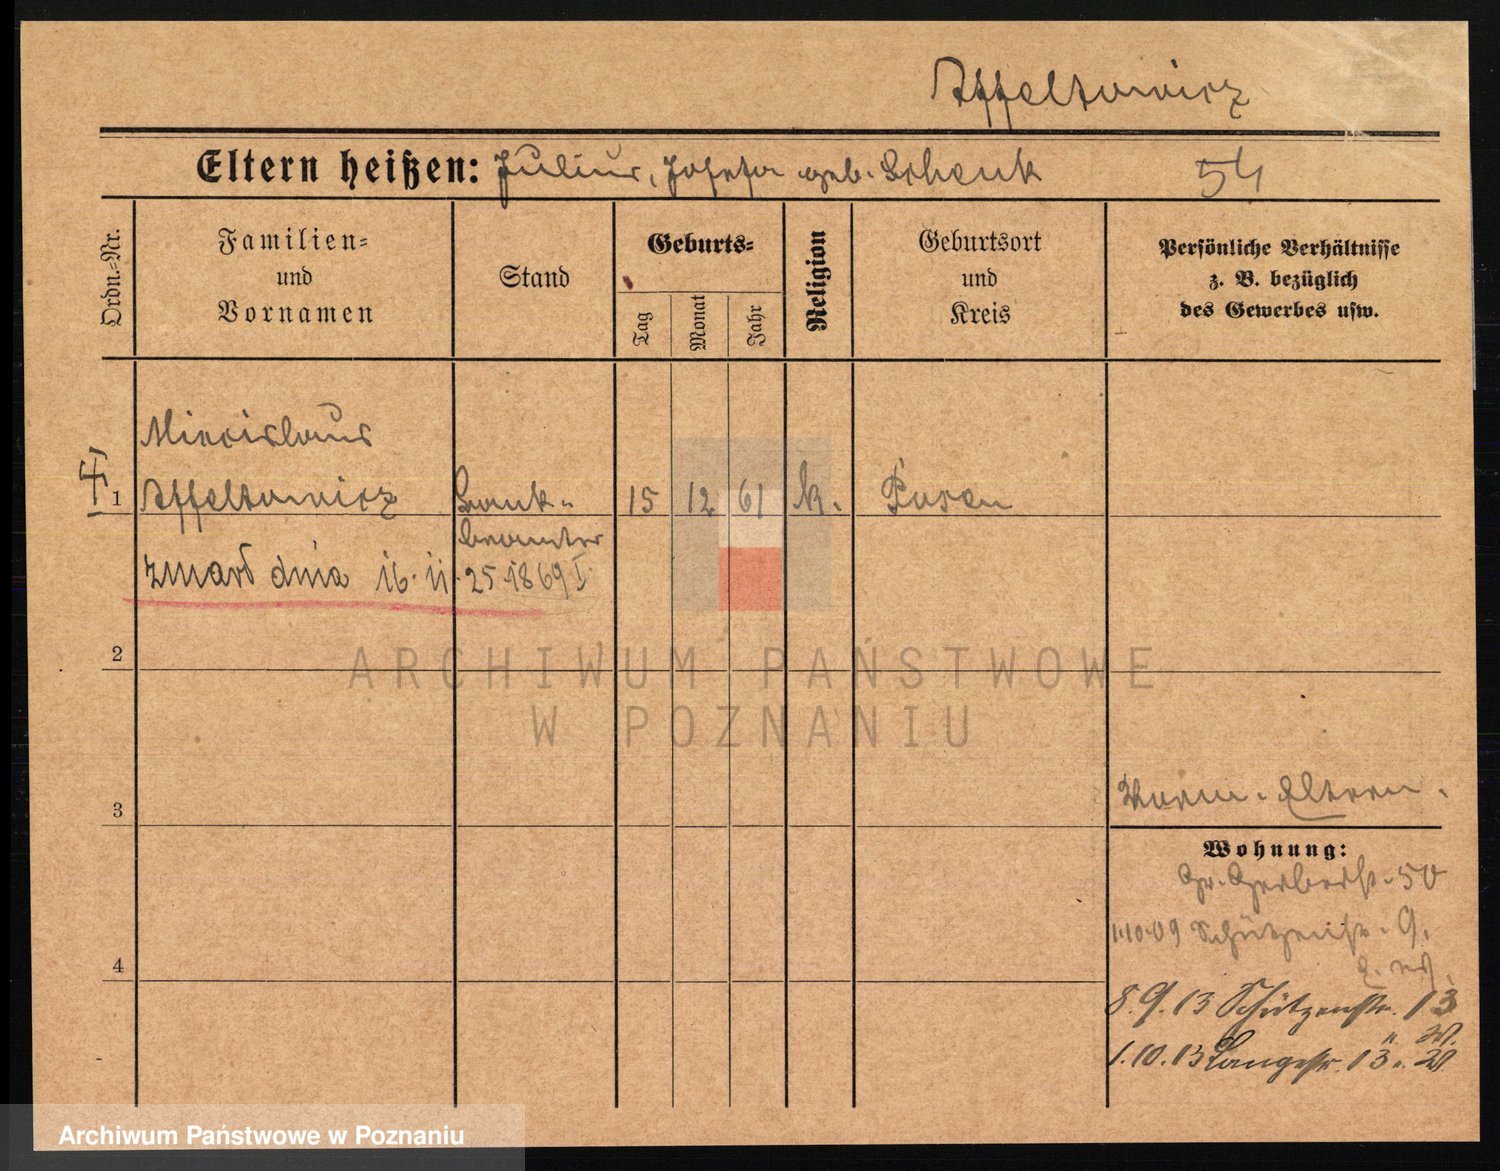 Affeltowicz
Eltern heißen: Julius, Josefa geb. Schenk 54
Ordn.-Nr.
Familien-
und
Vornamen
Stand
Geburts-
Tag
Monat
Jahr
Religion
Geburtsort
und
Kreis
Persönliche Verhältnisse
z. B. bezüglich
des Gewerbes usw.
Miecislaus
1 Affeltowicz Bank- 15 12 61 k. Posen
beamter
zmarł dnia 16. 11. 25 1869 I.
2
ARCHIWUM PAŃSTWOWE
W POZNANIU
3
Eltern.
Wohnung:
Gr. Gerberstr. 50
1.10.09 Schützenstr. 9.
4
8.9.13 Schützenstr. 13
1.10.13 Langestr. 13
Archiwum Państwowe w Poznaniu